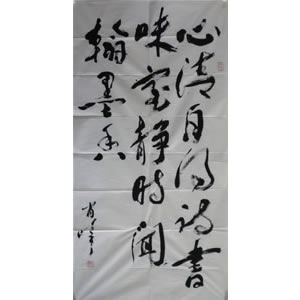 心清自得诗书
味室静时闻
翰墨香